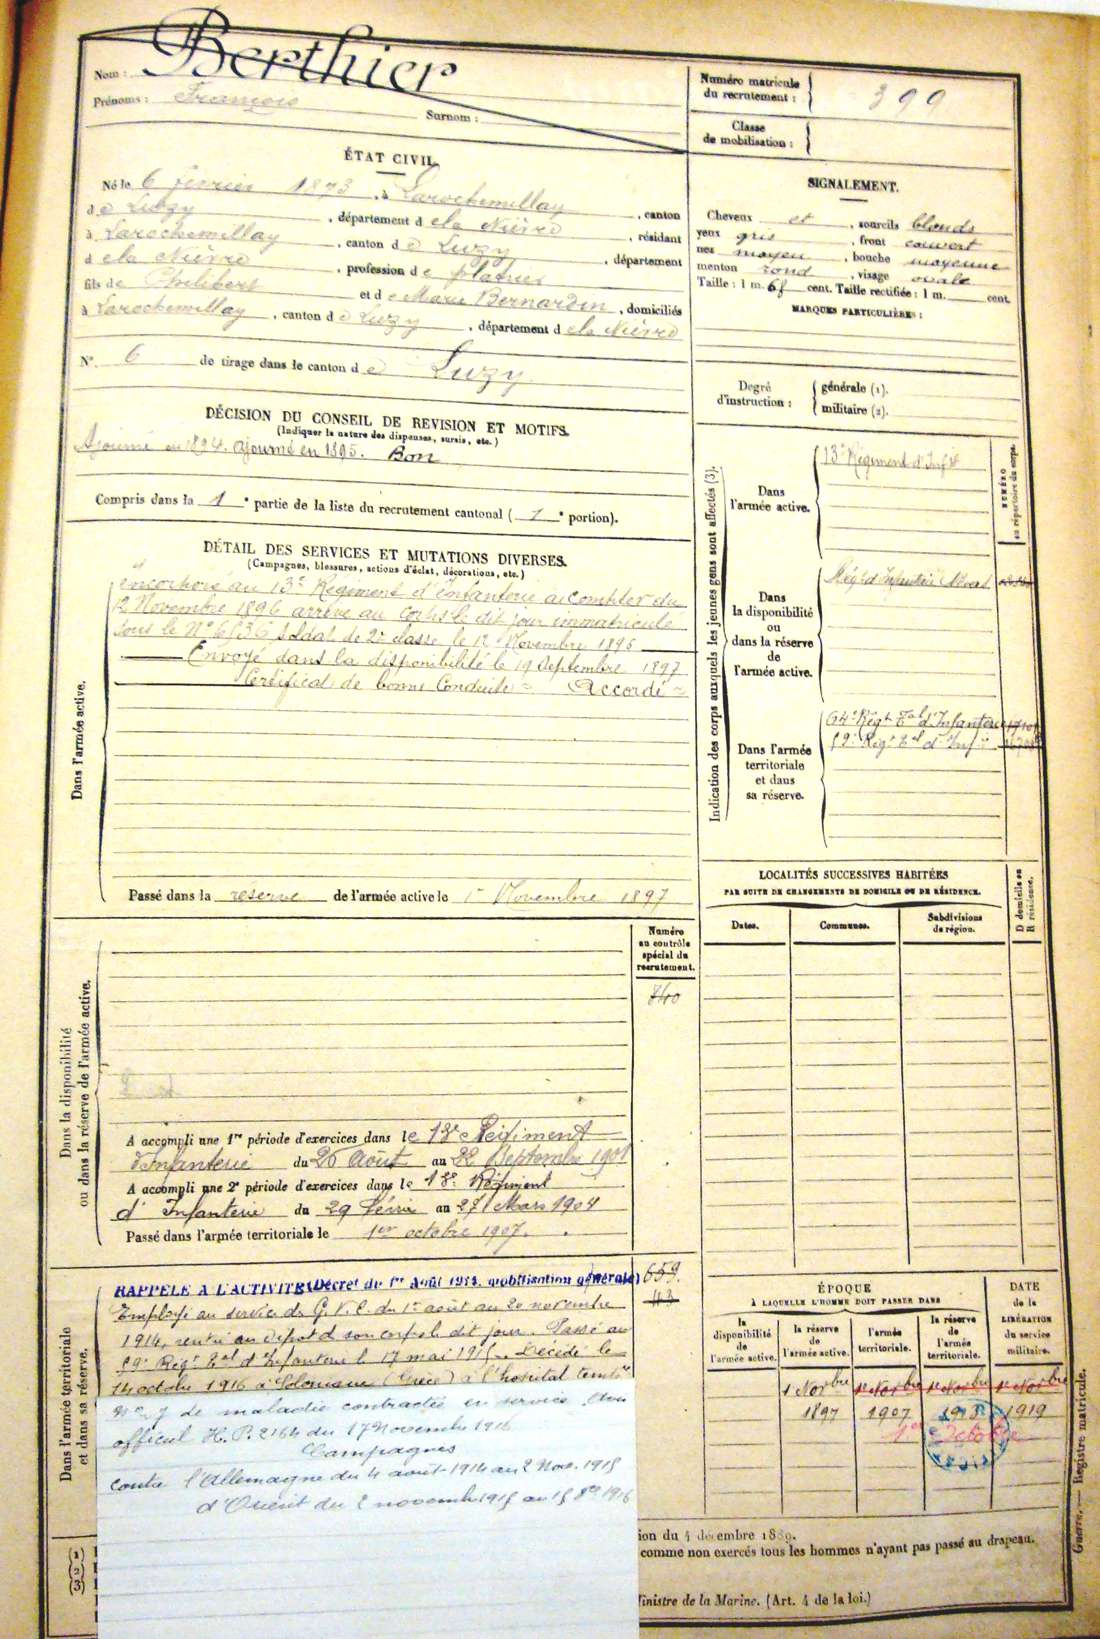 Nom : Berthier
Prénoms : François
Surnom :
Numéro matricule
du recrutement : 399
Classe
de mobilisation :
ÉTAT CIVIL
Né le 6 février 1873, à Larochemillay, canton
de Luzy, département de la Nièvre, résidant
à Larochemillay, canton de Luzy, département
de la Nièvre, profession de
fils de Philibert et de Marie Bernardin, domiciliés
à Larochemillay, canton de Luzy, département de la Nièvre
N° 6 de tirage dans le canton de Luzy
SIGNALEMENT.
Cheveux et, sourcils blonds
yeux gris, front couvert
nez moyen, bouche moyenne
menton rond, visage ovale
Taille : 1 m. cent. Taille rectifiée : 1 m. cent.
MARQUES PARTICULIÈRES :
Degré
d'instruction :
générale (1).
militaire (2).
DÉCISION DU CONSEIL DE REVISION ET MOTIFS.
(Indiquer la nature des dispenses, sursis, etc.)
Ajourné en 1894. ajourné en 1895. Bon
Compris dans la 1e partie de la liste du recrutement cantonal (1e portion).
DÉTAIL DES SERVICES ET MUTATIONS DIVERSES.
(Campagnes, blessures, actions d'éclat, décorations, etc.)
Dans l'armée active.
Incorporé au 13e Régiment d'Infanterie à compter du
12 Novembre 1896 arrivé au corps le dit jour immatriculé
sous le N° soldat de 2e classe le 12 Novembre 1896
Envoyé dans la disponibilité le 19 Septembre 1897
Certificat de bonne Conduite = Accordé =
Passé dans la réserve de l'armée active le 1r Novembre 1897
Indication des corps auxquels les jeunes gens sont affectés (3).
NUMÉRO
au répertoire du corps.
Dans
l'armée active.
13e Régiment d'Infie
Dans
la disponibilité
ou
dans la réserve
de
l'armée active.
Régt d'Infanterie
Dans l'armée
territoriale
et dans
sa réserve.
64e Régt Tal d'Infanterie
59e Régt Tal d'Infie
LOCALITÉS SUCCESSIVES HABITÉES
PAR SUITE DE CHANGEMENTS DE DOMICILE OU DE RÉSIDENCE.
Dates.
Communes.
Subdivisions
de région.
D domicile ou
R résidence.
Dans la disponibilité
ou dans la réserve de l'armée active.
Numéro
au contrôle
spécial du
recrutement.
840
A accompli une 1re période d'exercices dans le 13e Régiment
d'Infanterie du 26 Août au 22 Septembre 1901
A accompli une 2e période d'exercices dans le 13e Régiment
d'Infanterie du 29 Février au 27 Mars 1904
Passé dans l'armée territoriale le 1er octobre 1907.
Dans l'armée territoriale
et dans sa réserve.
RAPPELÉ A L'ACTIVITÉ (Décret du 1er Août 1914, mobilisation générale)
659.
43
Employé au service de G.V.C. du 1er août au 20 novembre
1914, rentré au dépôt de son corps le dit jour. Passé au
59e Régt Tal d'Infanterie le 17 mai 1915. Décédé le
14 octobre 1916 à Salonique (Grèce) à l'hôpital tempre
N° 7 de maladie contractée en service. Avis
officiel H.P. 2164 du 17 Novembre 1916
Campagnes
contre l'Allemagne du 4 août 1914 au 2 Nov. 1915
d'Orient du 2 novembre 1915 au 1916
ÉPOQUE
À LAQUELLE L'HOMME DOIT PASSER DANS
DATE
de la
LIBÉRATION
du service
militaire.
la
disponibilité
de
l'armée active.
la réserve
de
l'armée active.
l'armée
territoriale.
la réserve
de
l'armée
territoriale.
1 Novbre 1r Novbre 1r Novbre 1r Novbre
1897 1907 1913 1919
1er Octobre
(1)
(2)
(3)
ion du 4 décembre 1889.
comme non exercés tous les hommes n'ayant pas passé au drapeau.
Ministre de la Marine. (Art. 4 de la loi.)
Guerre. — Registre matricule.